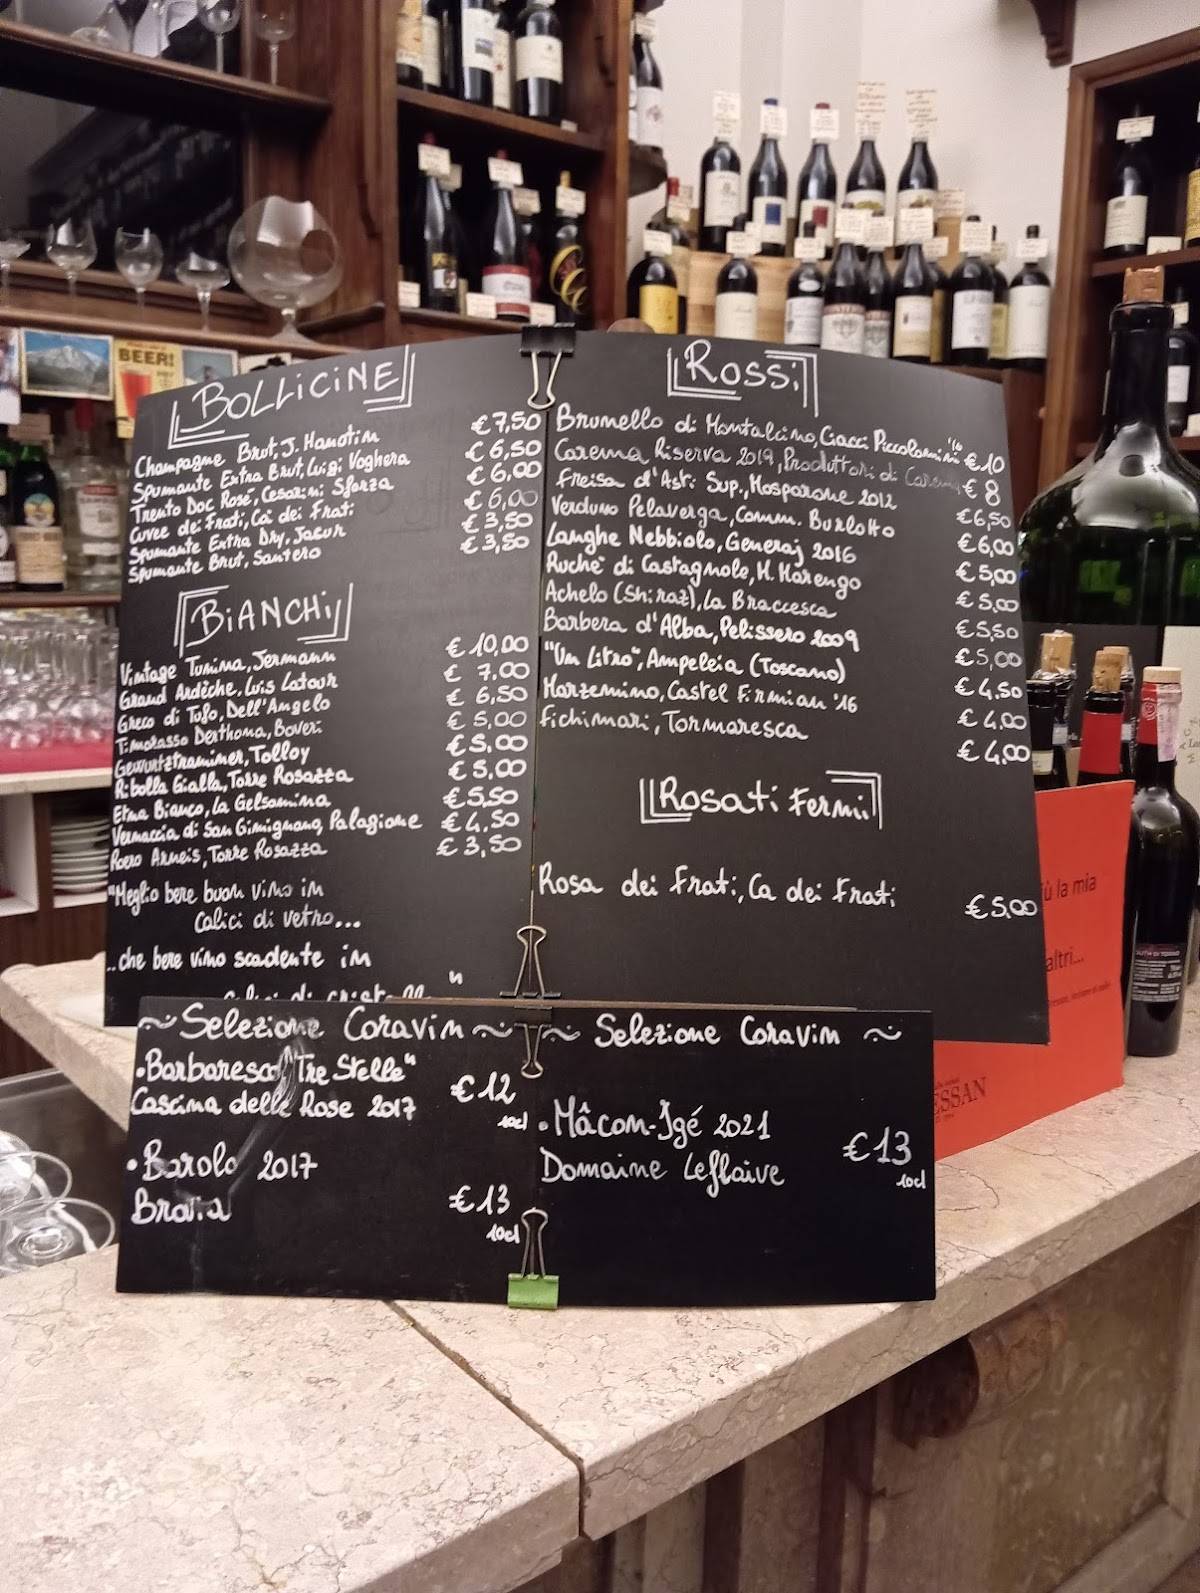 BOLLICINE
Champagne Brut, J. Hanotin €7,50
Spumante Extra Brut, Luigi Voghera €6,50
Trento Doc Rosé, Cesarini Sforza €6,00
Cuvee dei Frati, Cà dei Frati €6,00
Spumante Extra Dry, Jacur €3,50
Spumante Brut, Santero €3,50
BiANCHi
Vintage Tunina, Jermann €10,00
Grand Ardèche, Luis Latour €7,00
Greco di Tufo, Dell'Angelo €6,50
Timorasso Derthona, Boveri €5,00
Gewurtztraminer, Tolloy €5,00
Ribolla Gialla, Torre Rosazza €5,00
Etna Bianco, La Gelsomina €5,50
Vernaccia di San Gimignano, Palagione €4,50
Roero Arneis, Torre Rosazza €3,50
"Meglio bere buon vino in
calici di vetro...
..che bere vino scadente in
calici di cristallo "
ROSSi
Brunello di Montalcino, Ciacci Piccolomini '16 €10
Carema Riserva 2019, Produttori di Carema €8
Freisa d'Asti Sup., Mosparone 2012 €6,50
Verduno Pelaverga, Comm. Burlotto €6,00
Langhe Nebbiolo, Generaj 2016 €5,00
Ruchè di Castagnole, M. Marengo €5,00
Achelo (Shiraz), La Braccesca €5,50
Barbera d'Alba, Pelissero 2009 €5,00
"Un Litro", Ampeleia (Toscano) €4,50
Marzemino, Castel Firmian '16 €4,00
Fichimori, Tormaresca €4,00
ROSATi FERMi
Rosa dei Frati, Ca dei Frati €5,00
~Selezione Coravin~
•Barbaresco "Tre Stelle"
Cascina delle Rose 2017 €12
10cl
•Barolo 2017
Braia €13
10cl
~ Selezione Coravin ~
•Mâcon-Igé 2021
Domaine Leflaive €13
10cl
BEER!
ù la mia
altri...
ESSAN